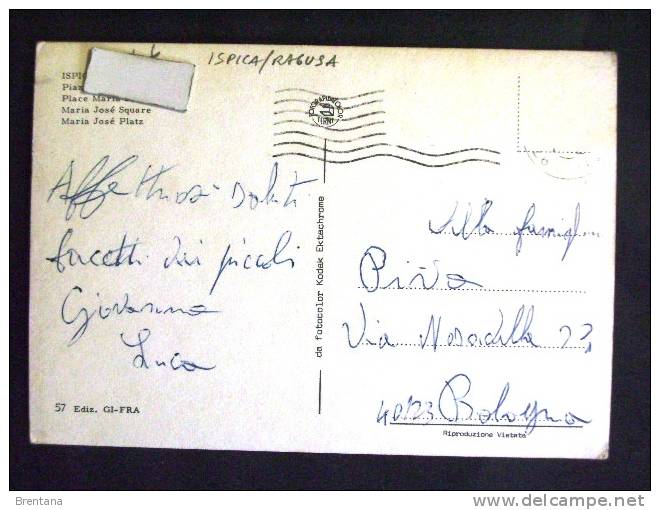 ISPICA/RAGUSA
ISPIC
Piaz
Place Maria
Maria José Square
Maria José Platz
Affettuosi saluti
bacetti dai piccoli
Giovanna
Luca
57 Ediz. GI-FRA
da fotocolor Kodak Ektachrome
Alla famigl
Piva
Via 22
40123 Bologna
Riproduzione Vietata
Brentana
delcampe.net